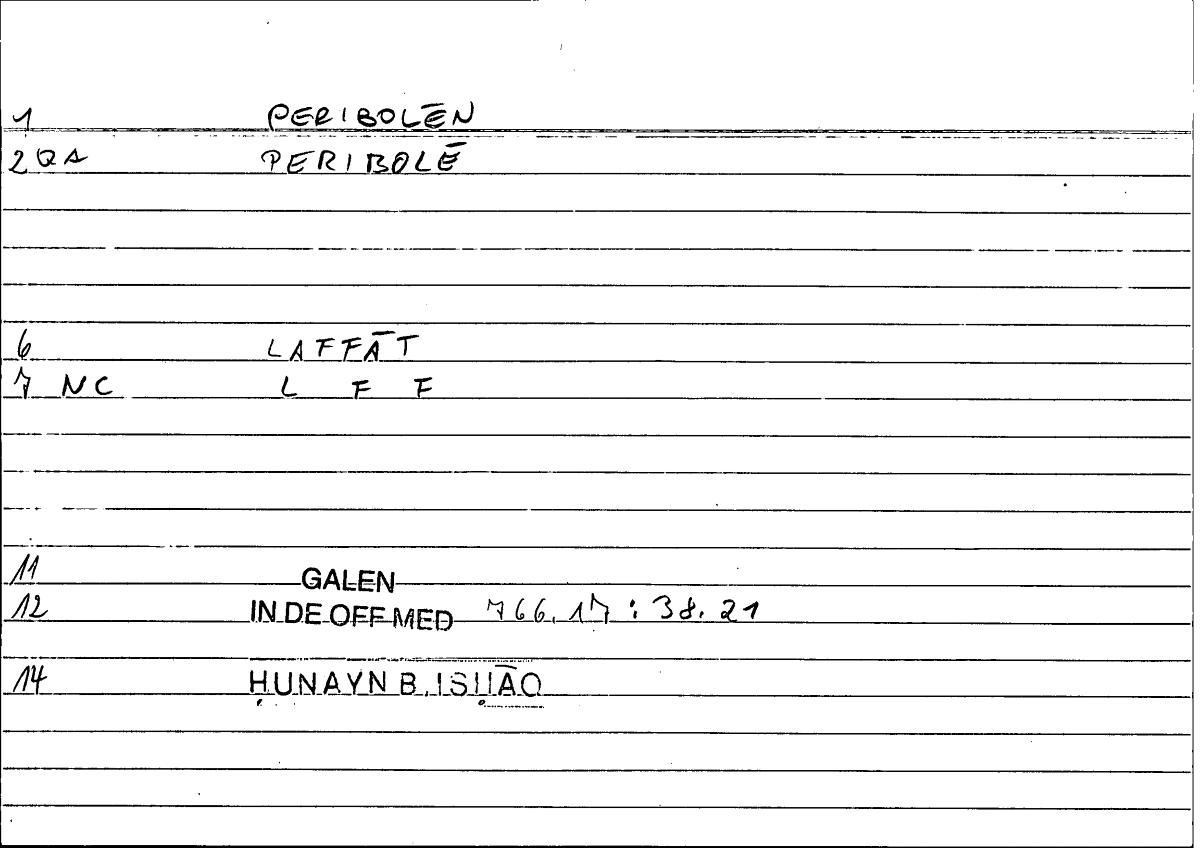 1 PERIBOLĒN
2 QA PERIBOLĒ
6 LAFFĀT
7 NC L F F
11 GALEN
12 IN DE OFF MED 766.17 : 38.21
14 ḤUNAYN B. ISḤĀQ